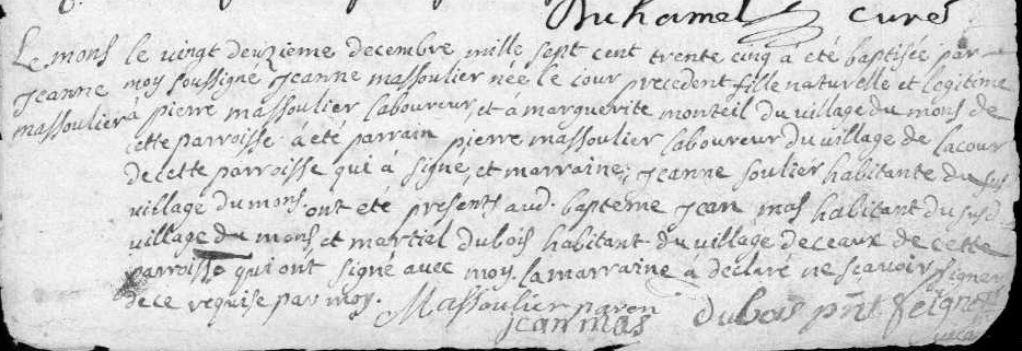 Duhamel curé
Le mons le vingt deuzieme decembre mille sept cent trente cinq à été baptisée par
Jeanne moy soussigne Jeanne massoulier née le iour precedent fille naturelle et legitime
massoulier à pierre massoulier laboureur, et à marguerite monteil du village du mons de
cette parroisse. à été parrain pierre massoulier laboureur du village de lacour
de cette parroisse qui à signé, et marraine, Jeanne soulier habitante du sus
village du mons. ont été presents aud. bapteme Jean mas habitant du susd
village du mons et martiel dubois habitant du village deceaux de cette
parroisse qui ont signé avec moy. la marraine à declaré ne scavoir signer
de ce requise par moy. Massoulier paren
jean mas Dubois pñt